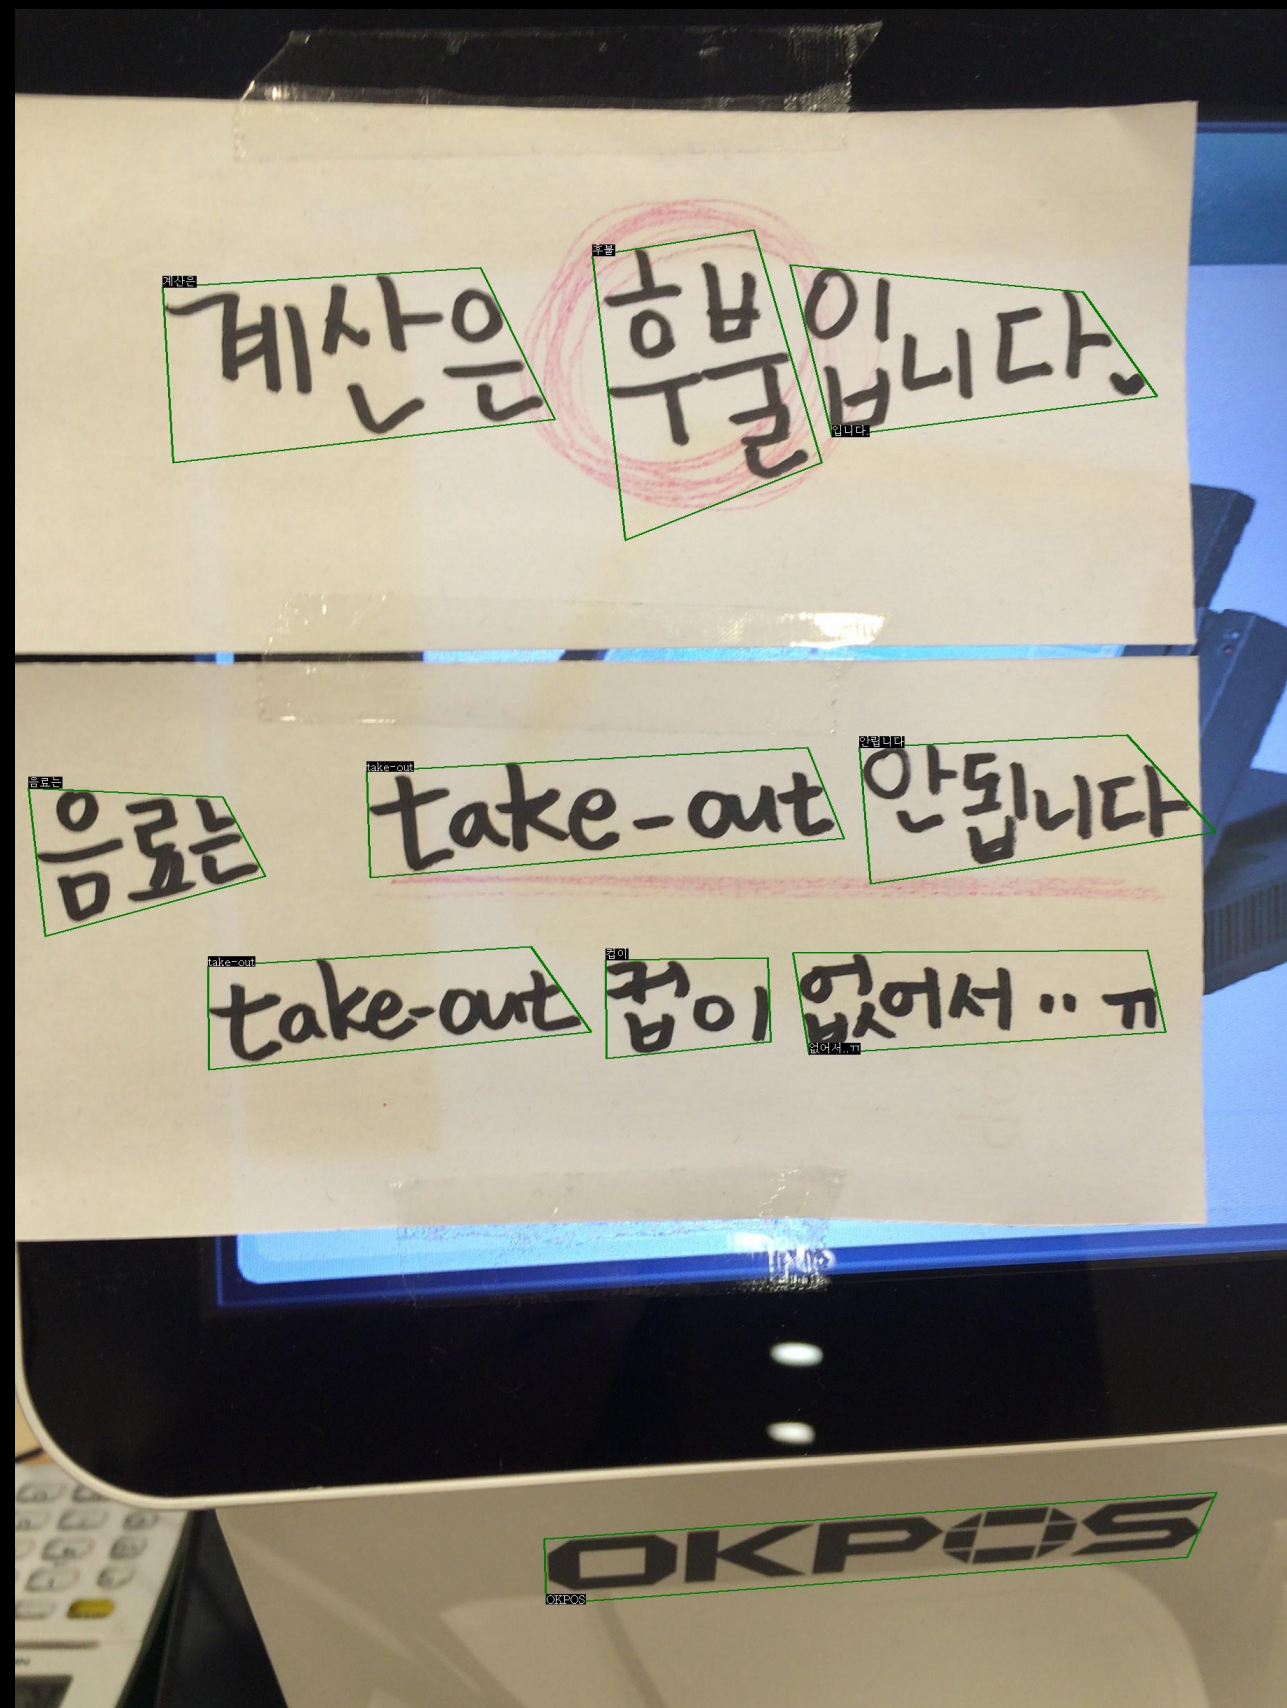 계산은 후불입니다.
음료는 take-out 안됩니다
take-out 컵이 없어서..ㅠ
OKPOS